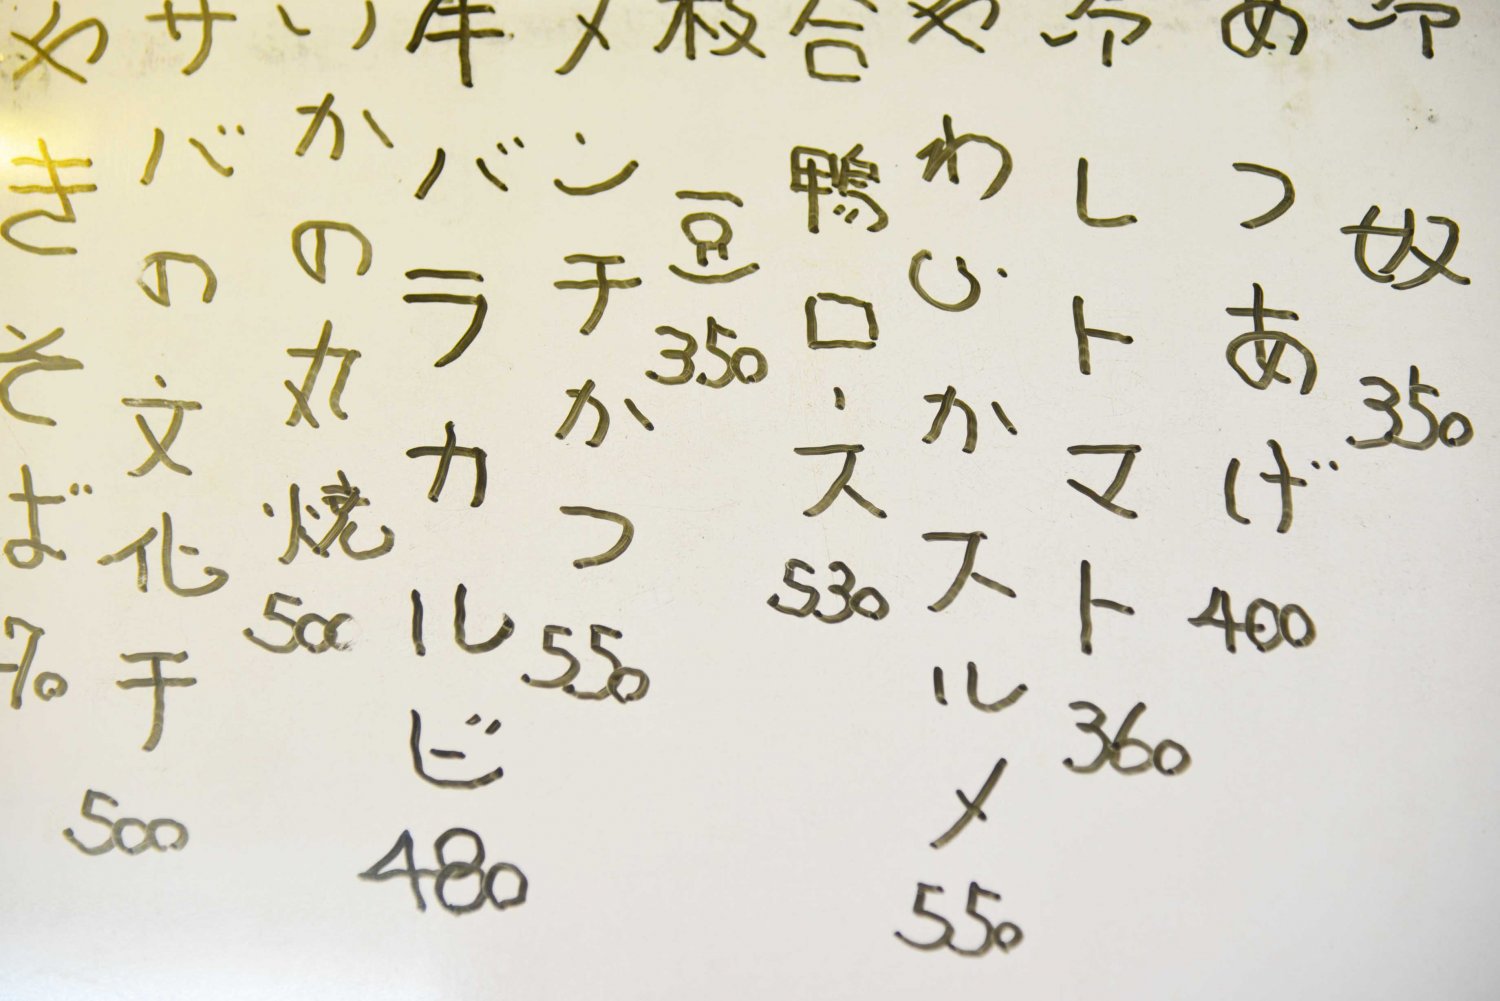 冷奴 350
あつあげ 400
冷しトマト 360
やわじかスルメ 550
合鴨ロース 530
枝豆 350
メンチかつ 550
牛バラカルビ 480
いかの丸焼 500
サバの文化干 500
やきそば 70